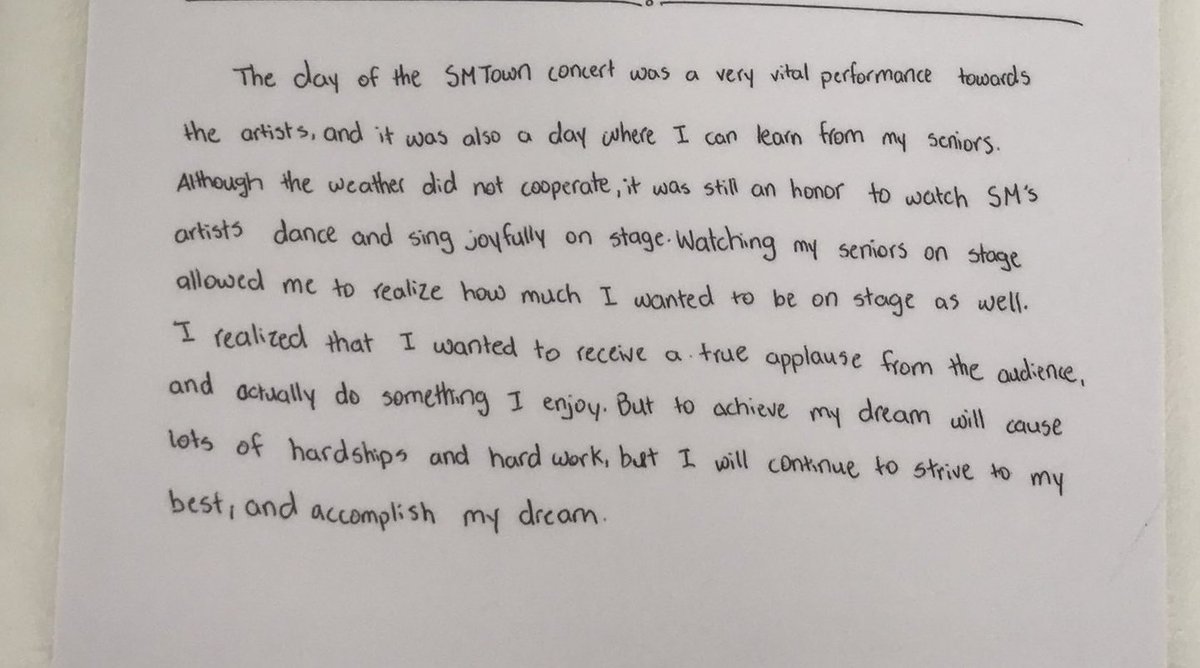 The day of the SMTown concert was a very vital performance towards
the artists, and it was also a day where I can learn from my seniors.
Although the weather did not cooperate, it was still an honor to watch SM's
artists dance and sing joyfully on stage. Watching my seniors on stage
allowed me to realize how much I wanted to be on stage as well.
I realized that I wanted to receive a true applause from the audience,
and actually do something I enjoy. But to achieve my dream will cause
lots of hardships and hard work, but I will continue to strive to my
best, and accomplish my dream.